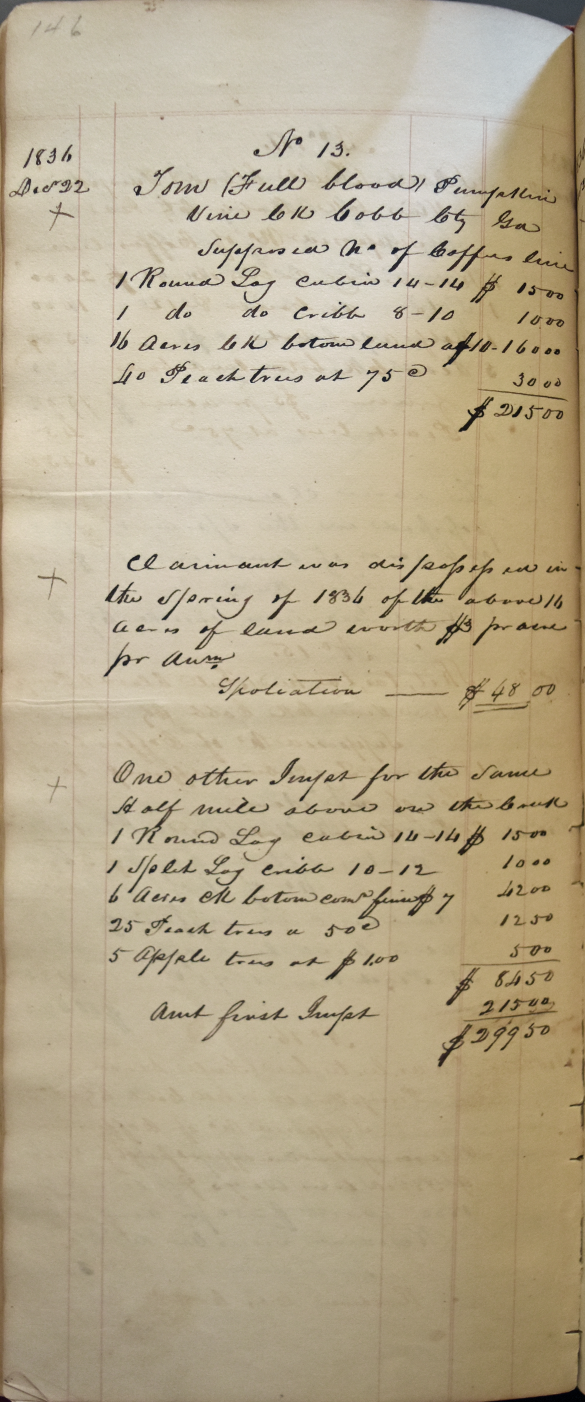 146
1836
Decr 22
No 13.
Tom (Full blood) Pumpkin
Vine Ck Cobb Cty Ga
Supposed No of Coffees line
1 Round Log cabin 14-14 $ 1500
1 do do cribb 8-10 1000
16 Acres Ck botom land at $10- 16000
40 Peach trees at 75c 3000
$ 21500
Claimant was dispossessed in
the Spring of 1836 of the above 16
acres of land worth $3 pr acre
pr Anm
Spoliation — $ 48 00
One other Impt for the same
Half mile above on the Creek
1 Round Log cabin 14-14 $ 1500
1 Split Log cribb 10-12 1000
6 Acres ck botom comn fence $7 4200
25 Peach trees a 50c 1250
5 Apple trees at $1.00 500
$ 8450
Amt first Impt 21500
$ 29950